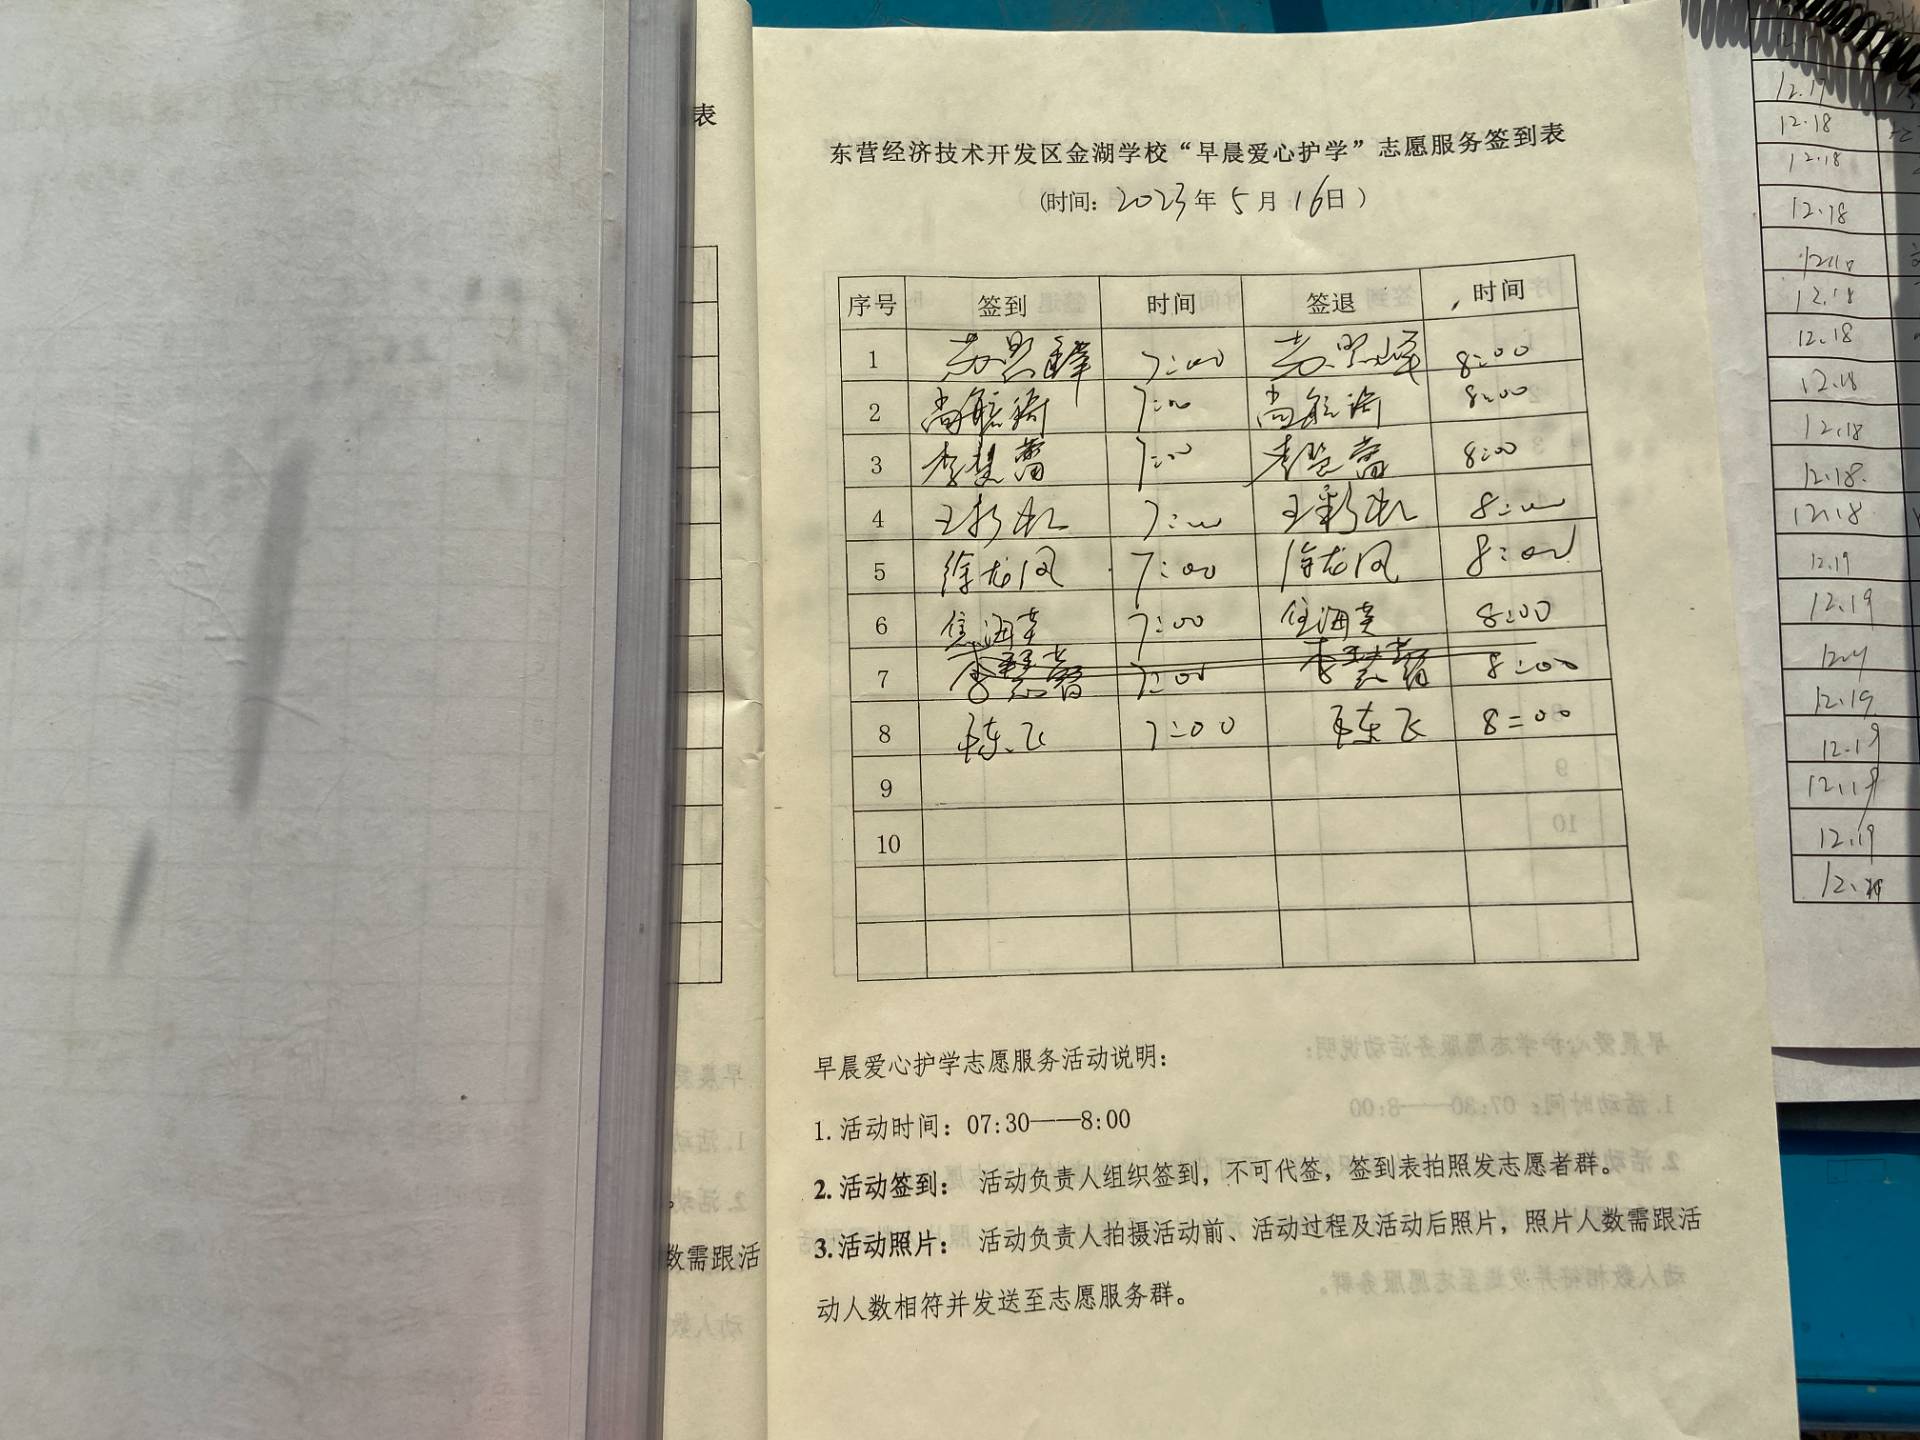 表
东营经济技术开发区金湖学校“早晨爱心护学”志愿服务签到表
(时间: 2023年 5 月 16日)
序号 签到 时间 签退 时间
1 7:00 8:00
2 尚航 7:00 尚航 8:00
3 李慧蕾 7:00 李慧蕾 8:00
4 王彩虹 7:00 王彩虹 8:00
5 徐龙凤 7:00 徐龙凤 8:00
6 7:00 8:00
7 李慧蕾 7:00 李慧蕾 8:00
8 陈飞 7:00 陈飞 8:00
9
10
早晨爱心护学志愿服务活动说明:
1. 活动时间: 07:30——8:00
2. 活动签到: 活动负责人组织签到, 不可代签, 签到表拍照发志愿者群。
3. 活动照片: 活动负责人拍摄活动前、活动过程及活动后照片, 照片人数需跟活
动人数相符并发送至志愿服务群。
数需跟活
12.17
12.18
12.18
12.18
12.18
12.18
12.18
12.18
12.18
12.18
12.19
12.19
12.19
12.19
12.19